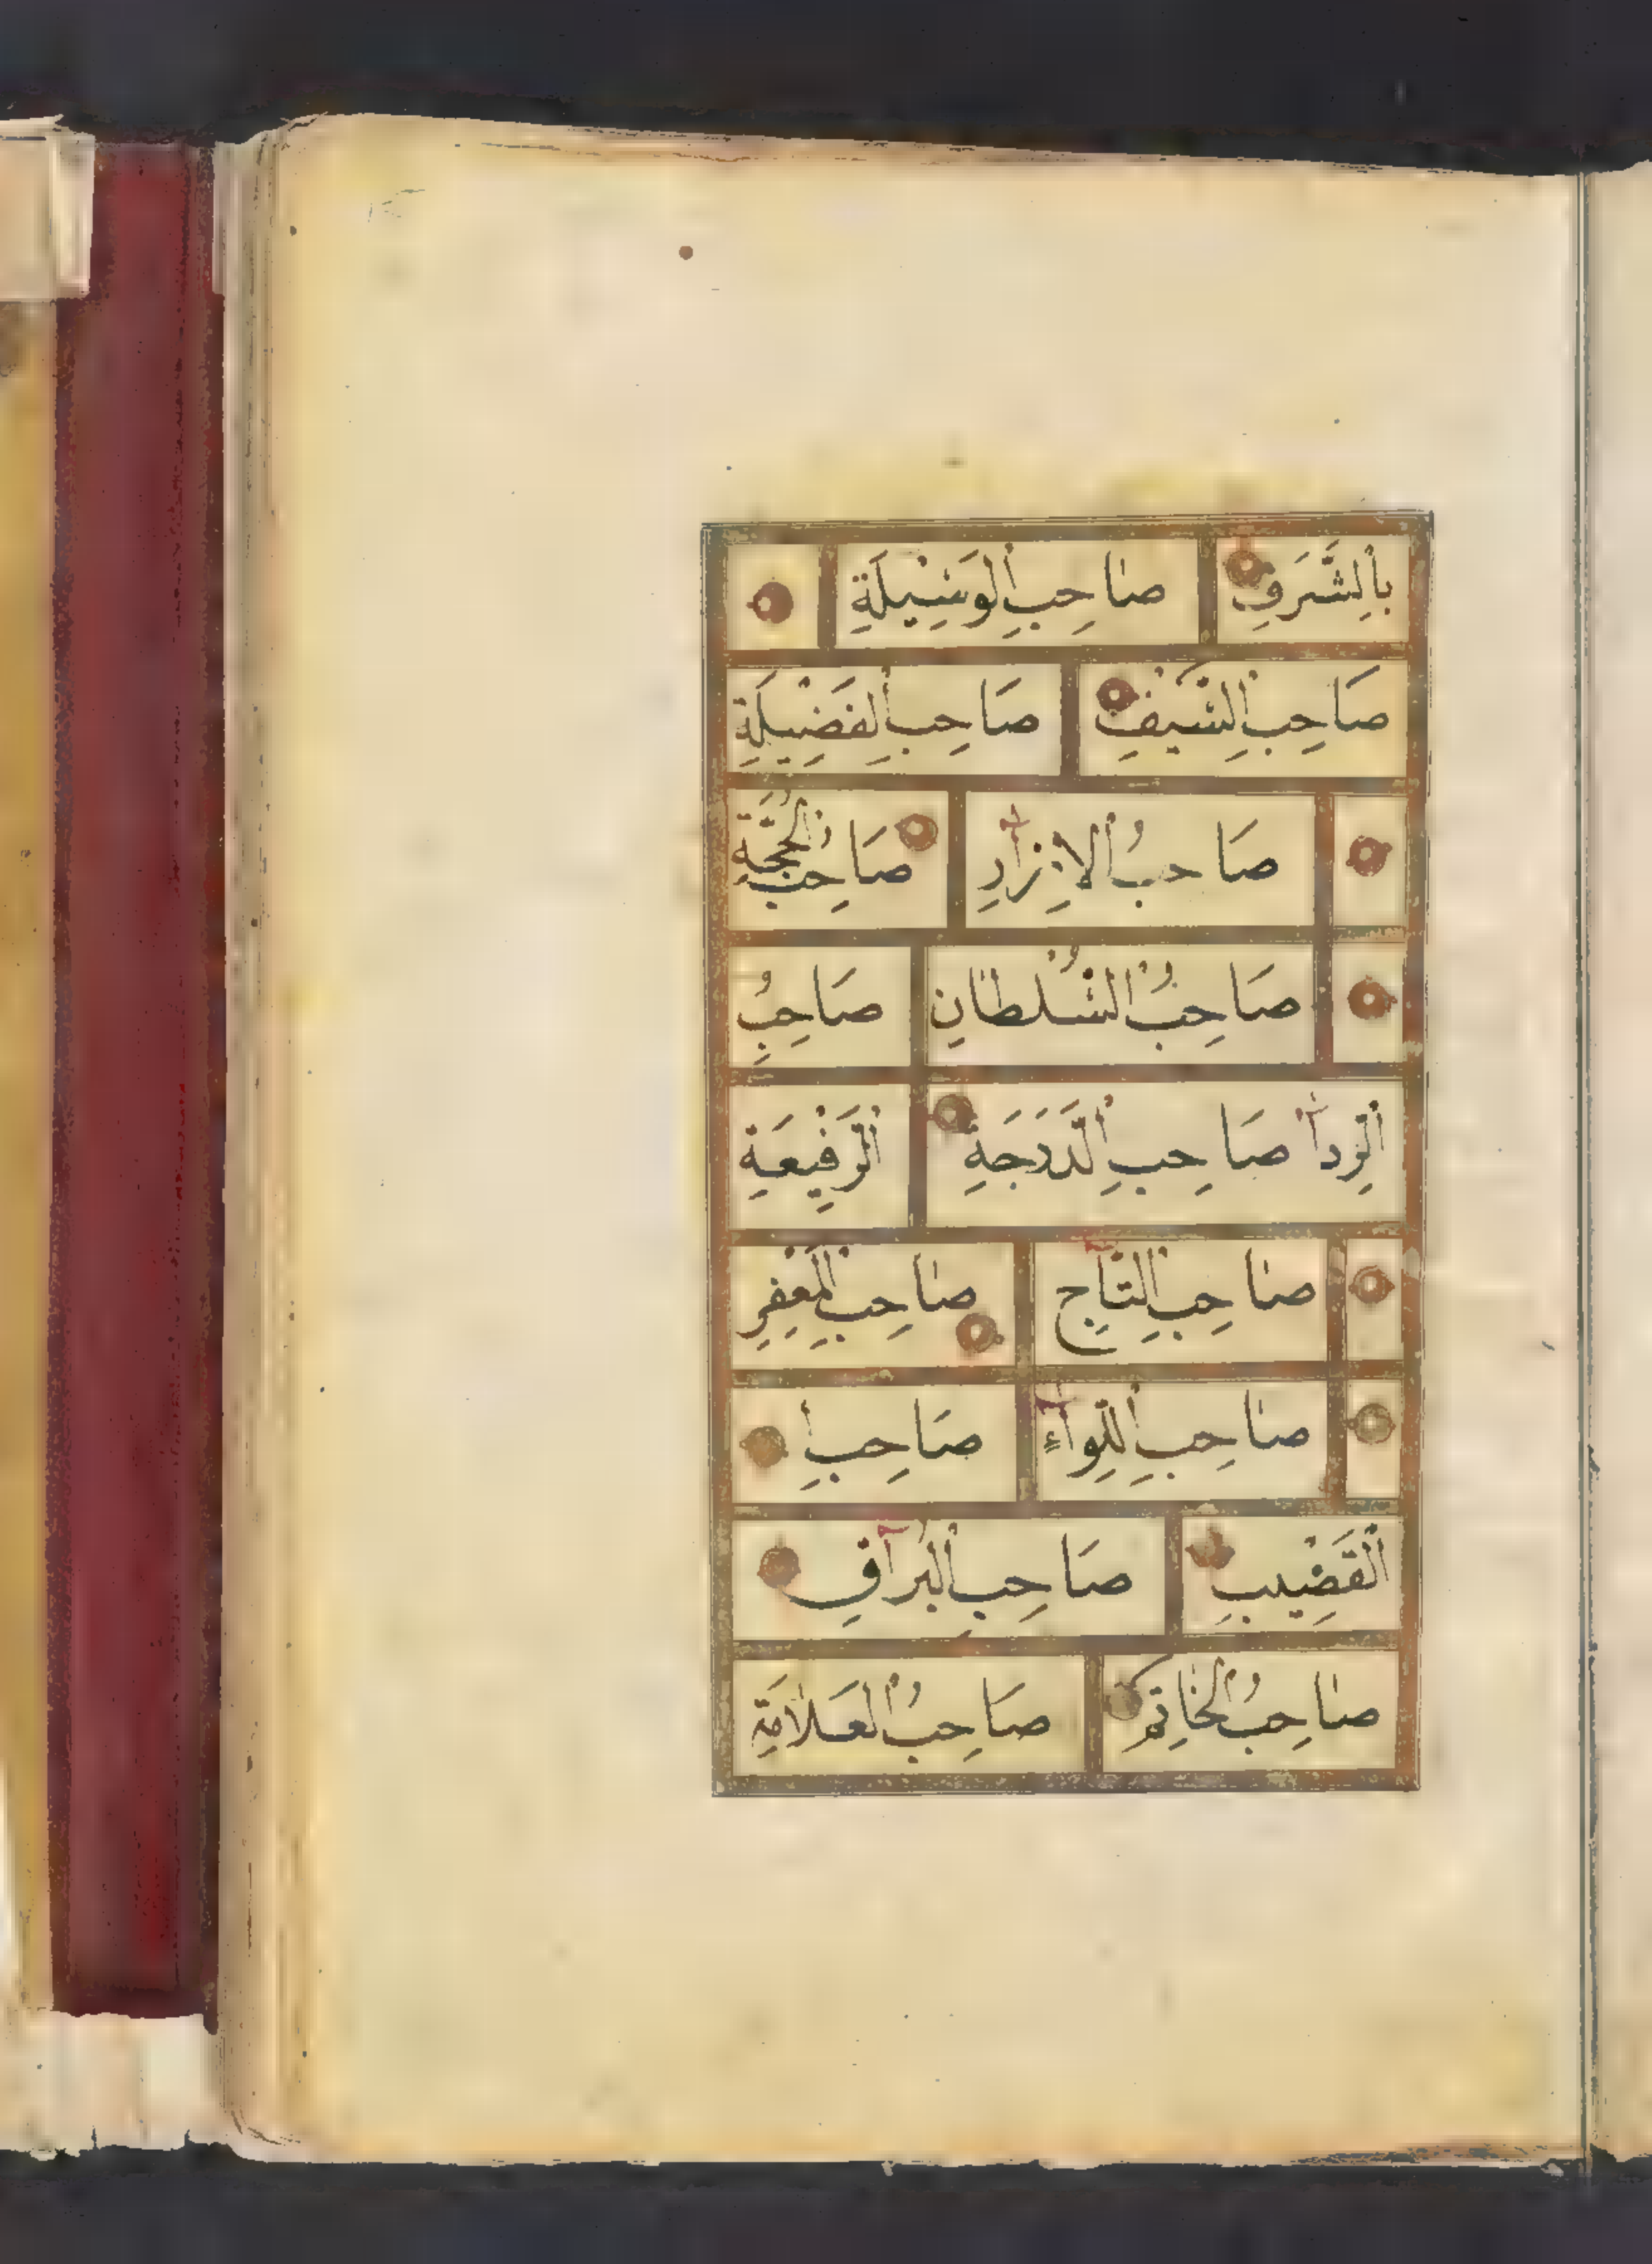 بِالشَّرَفِ صَاحِبِ الْوَسِيْلَةِ
صَاحِبِ السَّيْفِ صَاحِبِ الْفَضِيْلَةِ
صَاحِبُ الْاِزَارِ صَاحِبُ الْحُجَّةِ
صَاحِبُ السُّلْطَانِ صَاحِبُ
الرِّدَآ صَاحِبِ الدَّرَجَةِ الرَّفِيْعَةِ
صَاحِبِ التَّاجِ صَاحِبِ الْمِغْفَرِ
صَاحِبِ اللِّوَآءِ صَاحِبِ
الْقَضِيْبِ صَاحِبِ الْبُرَاقِ
صَاحِبُ الْخَاتِمِ صَاحِبُ الْعَلَامَةِ